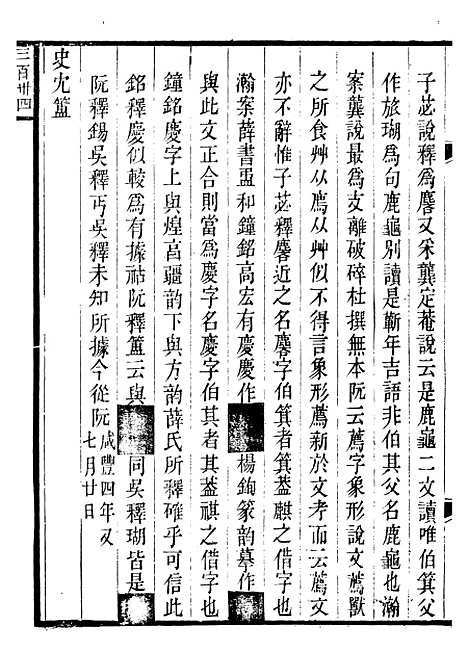 子苾說釋爲麐又采龔定菴說云是鹿龜二文讀唯伯箕父
作旅瑚爲句鹿龜別讀是靳年吉語非伯其父名鹿龜也瀚
案龔說最爲支離破碎杜撰無本阮云薦字象形說文薦獸
之所食艸从廌从艸似不得言象形薦新於文考而云薦文
亦不辭惟子苾釋麐近之名麐字伯箕者箕葢麒之借字也
瀚案薛書盄和鐘銘高宏有慶慶作 楊鉤篆韵摹作
與此文正合則當爲慶字名慶字伯其者其葢祺之借字也
鐘銘慶字上與煌高疆韵下與方韵薛氏所釋確乎可信此
銘釋慶似較爲有據祜阮釋簠云與 同吳釋瑚皆是
阮釋鍚吳釋丏吳釋未知所據今從阮 咸豐四年又
七月廿日
史尤簠
三百卅四